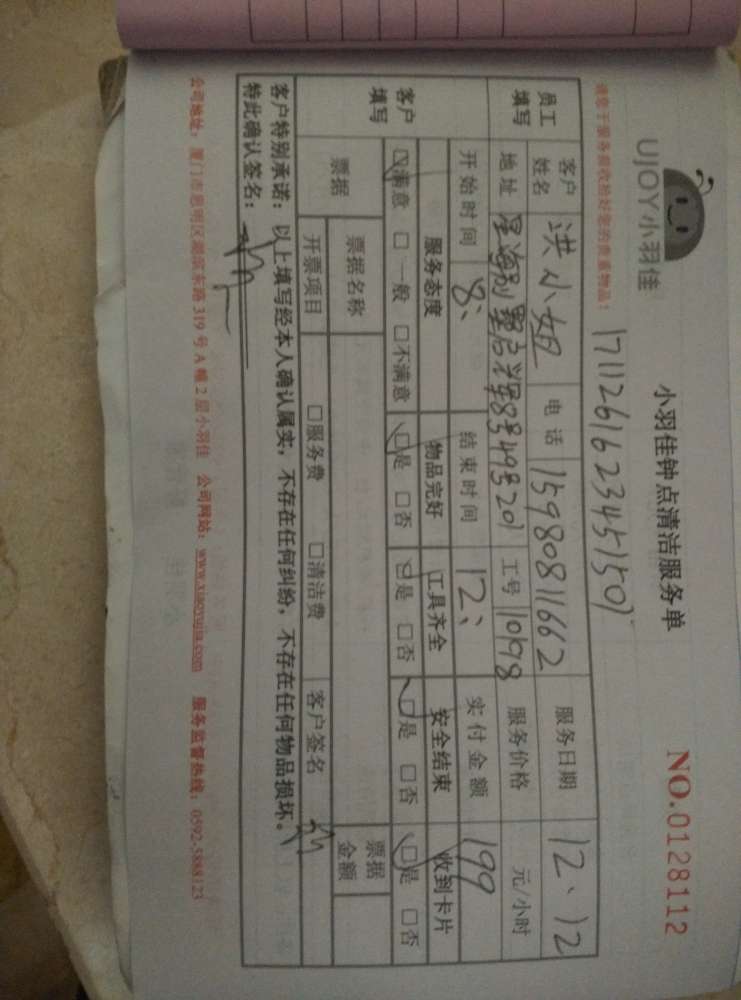 UJOY小羽佳
小羽佳钟点清洁服务单
NO.0128112
1711261623451501
请您于服务前收拾好您的贵重物品！
员工填写 客户姓名 洪小姐 电话 15980811662 服务日期 12、12
地址 星海别墅 号 201 工号 10198 服务价格 元/小时
客户填写 开始时间 8、 结束时间 12、 实付金额 199
服务态度 物品完好 工具齐全 安全结束 收到卡片
☑满意 □一般 □不满意 ☑是 □否 ☑是 □否 ☑是 □否 ☑是 □否
票据 票据名称 票据金额
开票项目 □服务费 □清洁费 客户签名
客户特别承诺：以上填写经本人确认属实，不存在任何纠纷，不存在任何物品损坏。
特此确认签名：
公司地址：厦门市思明区湖滨东路319号A幢2层小羽佳 公司网站：www.xiaoyujia.com 服务监督热线：0592-5888123